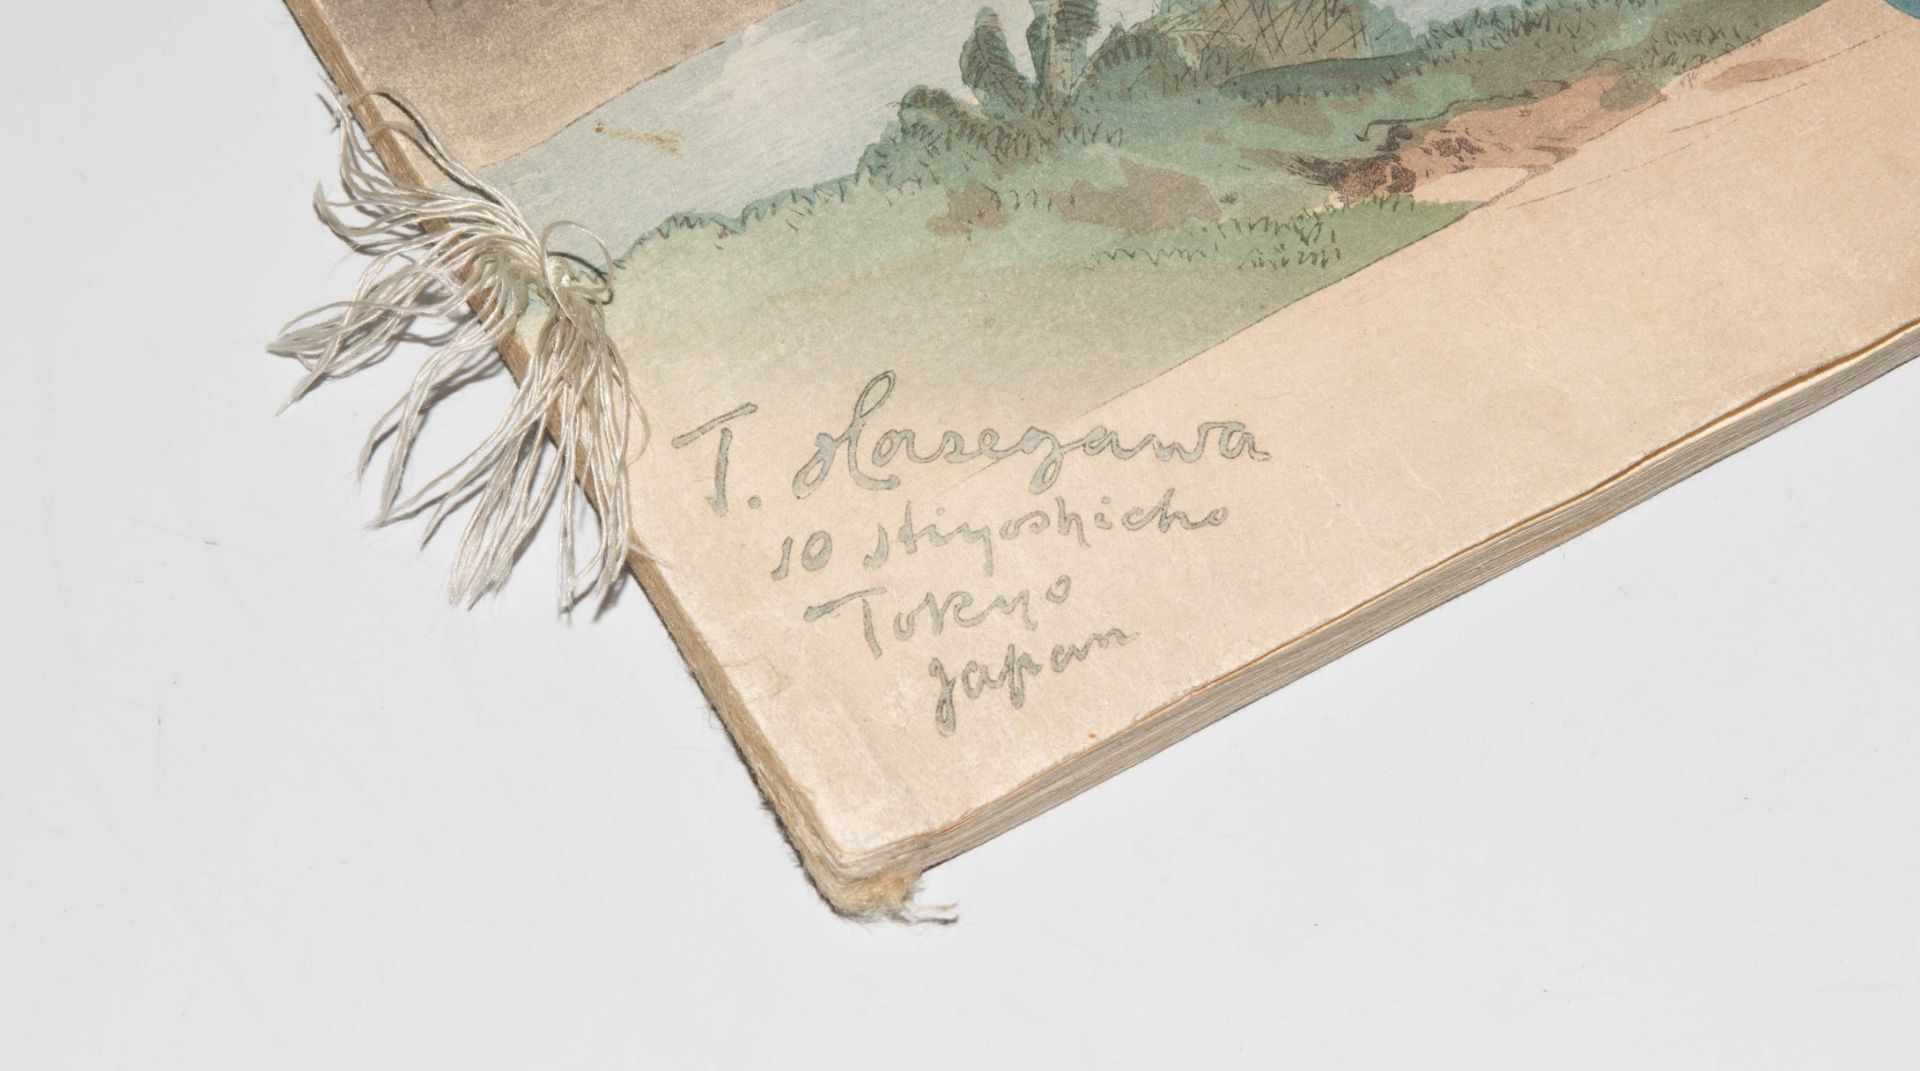 T. Hasegawa
10 Hiyoshicho
Tokyo
Japan